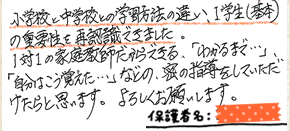 小学校と中学校との学習方法の違い、1学生(基本)
の重要性を再認識できました。
1対1の家庭教師だからできる、「わかるまで…」、
「自分はこう覚えた…」などの、密の指導をしていただ
けたらと思います。よろしくお願いします。
保護者名: